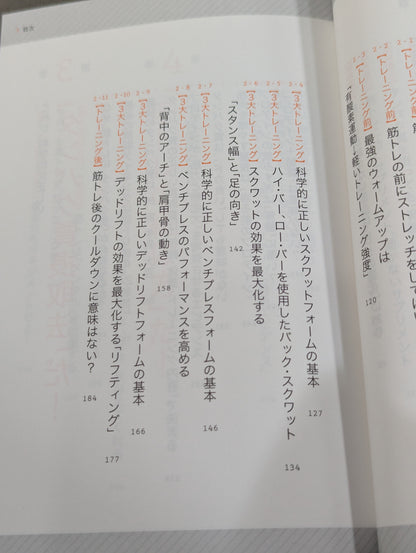 目次
筋トレの前にストレッチをして
2-2【トレーニング前】
最強のウォームアップは
「有酸素運動→軽いトレーニング強度」 120
2-4【3大トレーニング】科学的に正しいスクワットフォームの基本 127
2-5【3大トレーニング】ハイ・バー、ロー・バーを使用したバック・スクワット 134
2-6【3大トレーニング】スクワットの効果を最大化する
「スタンス幅」と「足の向き」 142
2-7【3大トレーニング】科学的に正しいベンチプレスフォームの基本 146
2-8【3大トレーニング】ベンチプレスのパフォーマンスを高める
「背中のアーチ」と「肩甲骨の動き」 158
2-9【3大トレーニング】科学的に正しいデッドリフトフォームの基本 166
2-10【3大トレーニング】デッドリフトの効果を最大化する「リフティング」 177
2-11【トレーニング後】筋トレ後のクールダウンに意味はない? 184